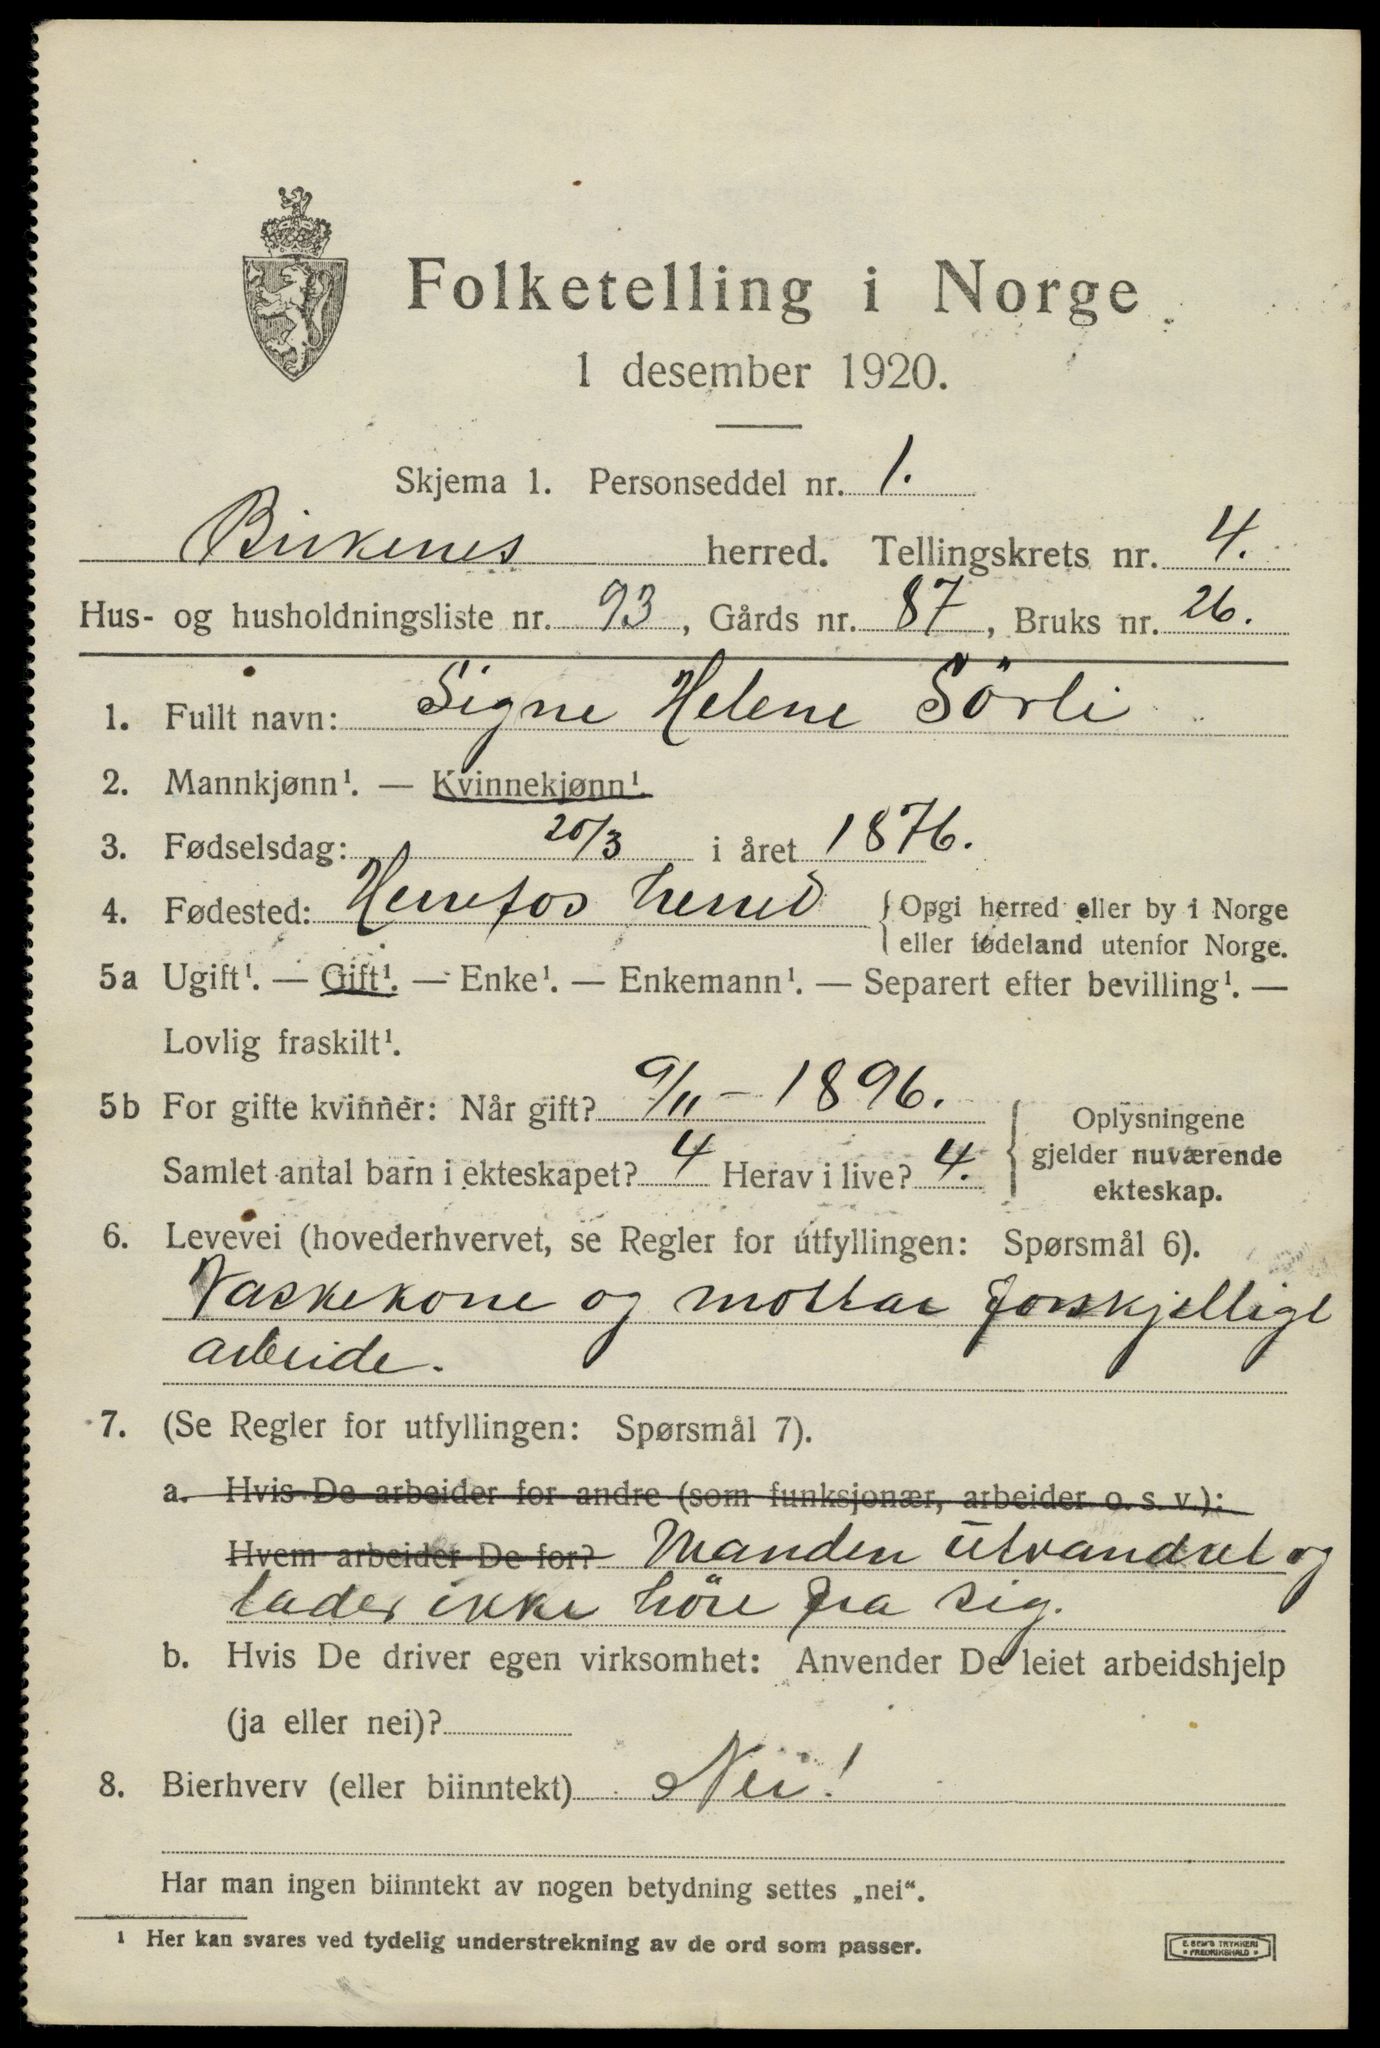 Folketelling i Norge
1 desember 1920.
Skjema 1. Personseddel nr. 1.
Birkenes herred. Tellingskrets nr. 4.
Hus- og husholdningsliste nr. 93, Gårds nr. 87, Bruks nr. 26.
1. Fullt navn: Signe Helene Sörli
2. Mannkjønn¹. — Kvinnekjønn¹.
3. Fødselsdag: 20/3 i året 1876.
4. Fødested: Herefos herred {Opgi herred eller by i Norge
eller fødeland utenfor Norge.
5a Ugift¹. — Gift¹. — Enke¹. — Enkemann¹. — Separert efter bevilling¹. —
Lovlig fraskilt¹.
5b For gifte kvinner: Når gift? 9/11 - 1896.
Samlet antal barn i ekteskapet? 4 Herav i live? 4.
Oplysningene
gjelder nuværende
ekteskap.
6. Levevei (hovederhvervet, se Regler for utfyllingen: Spørsmål 6).
Vaskekone og mottar forskjellige
arbeide.
7. (Se Regler for utfyllingen: Spørsmål 7).
a. Hvis De arbeider for andre (som funksjonær, arbeider o. s. v.):
Hvem arbeider De for? Manden utvandret og
lader ikke höre fra sig.
b. Hvis De driver egen virksomhet: Anvender De leiet arbeidshjelp
(ja eller nei)?
8. Bierhverv (eller biinntekt) Nei!
Har man ingen biinntekt av nogen betydning settes „nei“.
¹ Her kan svares ved tydelig understrekning av de ord som passer.
E. SEM'S TRYKKERI
• FREDRIKSHALD •